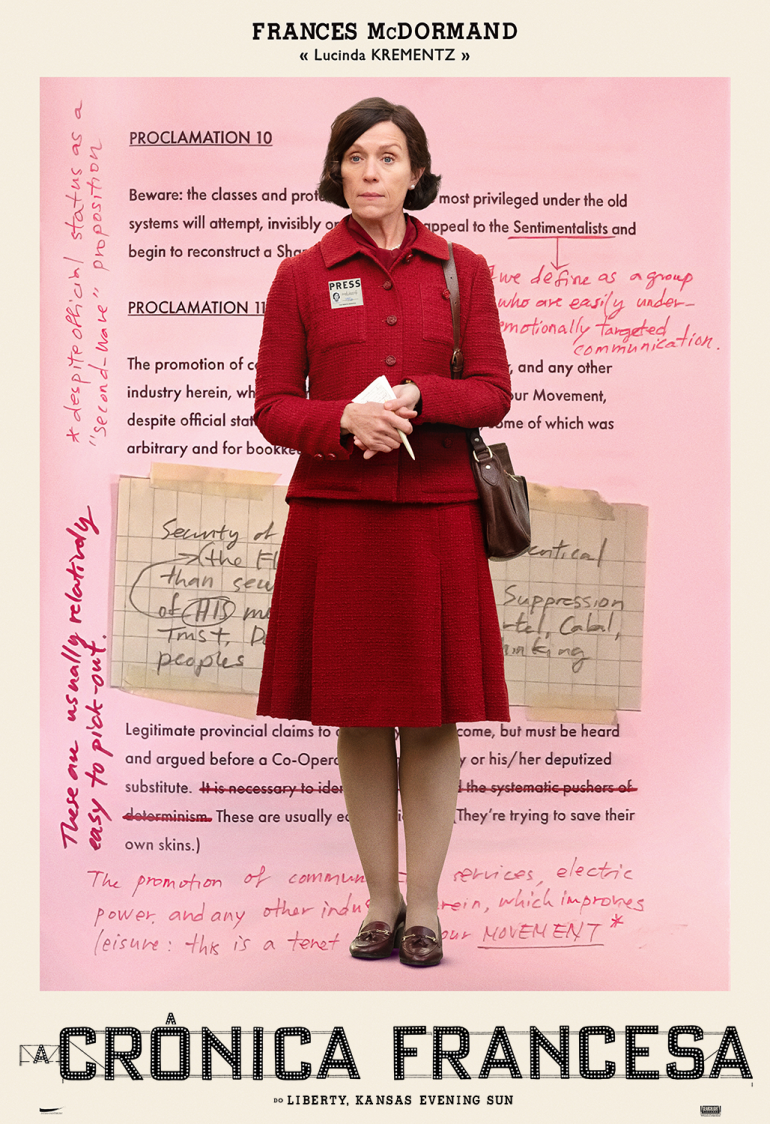 FRANCES McDORMAND
« Lucinda KREMENTZ »
PROCLAMATION 10
Beware: the classes and prote most privileged under the old
systems will attempt, invisibly or appeal to the Sentimentalists and
begin to reconstruct a Sha
we define as a group
who are easily under-
emotionally targeted
communication.
PRESS
PROCLAMATION 11
The promotion of co , and any other
industry herein, wh our Movement,
despite official stat ome of which was
arbitrary and for bookke
* despite official status as a
"second-wave" proposition
Security of entical
(the Fl
than secu
of HIS m Suppression
Trust, D rtel, Cabal,
peoples hinking
These are usually relatively
easy to pick-out.
Legitimate provincial claims to come, but must be heard
and argued before a Co-Opera y or his/her deputized
substitute. It is necessary to iden d the systematic pushers of
determinism. These are usually ea (They're trying to save their
own skins.)
The promotion of commun services, electric
power, and any other indus erein, which improves
leisure: this is a tenet our MOVEMENT *
A CRÔNICA FRANCESA
DO LIBERTY, KANSAS EVENING SUN